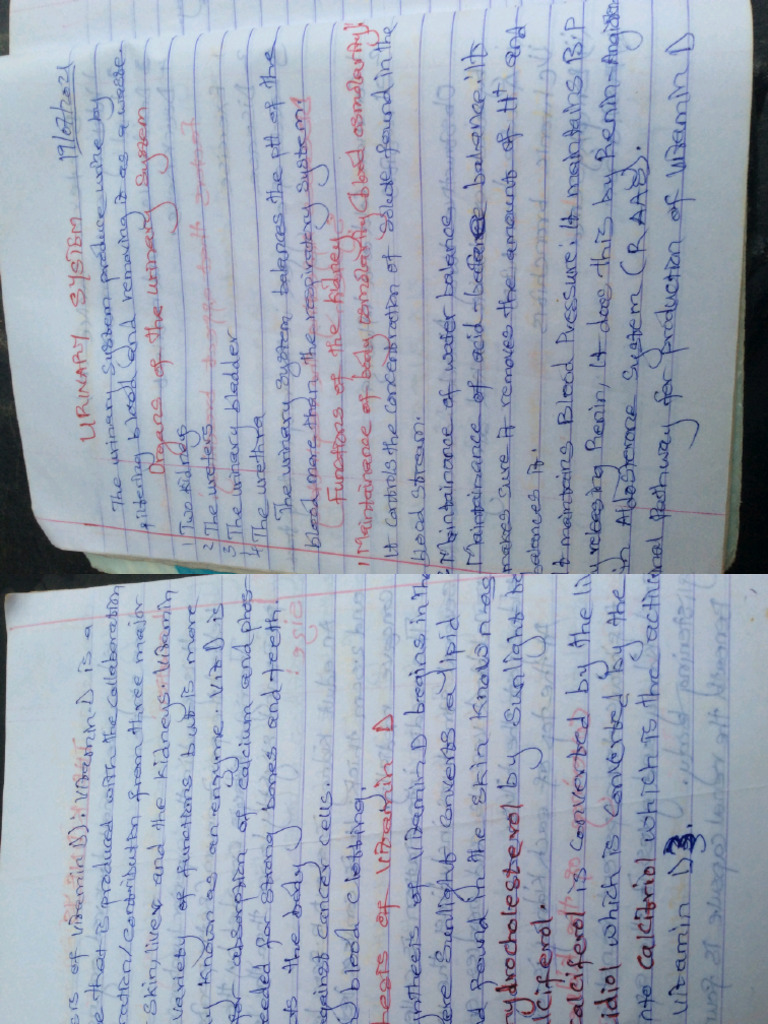 URINARY SYSTEM 19/07/2021
The urinary system produce urine by
filtering blood (and removing it as a waste.
Organs of the urinary system
1 Two kidneys
2 The ureters
3 The urinary bladder
4 The urethra
The urinary system balances the pH of the
blood more than the respiratory system!
Functions of the kidney:
1 Maintainance of body osmolarity (blood osmolarity)
It controls the concentration of solute found in the
blood stream.
Maintainance of water balance
Maintainance of acid-base balance: It
makes sure it removes the amounts of H+ and
balances it.
It maintains Blood Pressure: It maintains B.P
y releasing Renin, It does this by Renin-Angioten
in Aldosterone System (RAAS).
nal Pathway for production of Vitamin D
is of Vitamin D): Vitamin D is a
e that is produced with the collaboration
ration/contribution from three major
skin, liver and the kidneys. Vitamin
variety of functions but is more
y known as an enzyme. Vit D is
for absorption of calcium and phos-
eeded for strong bones and teeth.
ts the body
against cancer cells.
blood clotting.
hesis of Vitamin D
ynthesis of Vitamin D begins in the
ere sunlight converts a lipid
nd found in the skin known as
hydrocholesterol by sunlight to
lciferol.
alciferol is converted by the liv
idiol which is converted by the
into calcitriol which is the activ
vitamin D3.